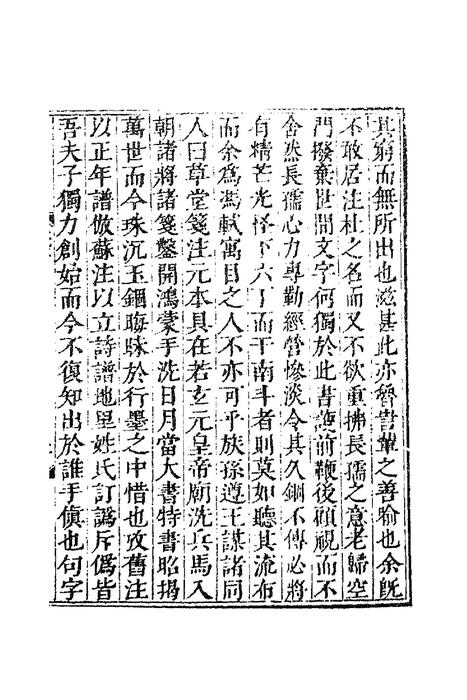 其窮而無所出也滋甚此亦魯昔軰之善喻也余旣
不敢居注杜之名而又不欲重拂長孺之意老歸空
門撥棄世間文字何獨於此書護前鞭後顧視而不
舍然長孺心力專勤經營慘淡令其久錮不傳必將
有精芒光怪下六丁而干南斗者則莫如聽其流布
而余爲馮軾寓目之人不亦可乎族孫遵王謀諸同
人曰草堂箋注元本具在若玄元皇帝廟洗兵馬入
朝諸將諸箋鑿開鴻蒙手洗日月當大書特書昭揭
萬世而今珠沉玉錮晦昧於行墨之中惜也攷舊注
以正年譜倣蘇注以立詩譜地里姓氏訂譌斥僞皆
吾夫子獨力創始而今不復知出於誰手愼也句字